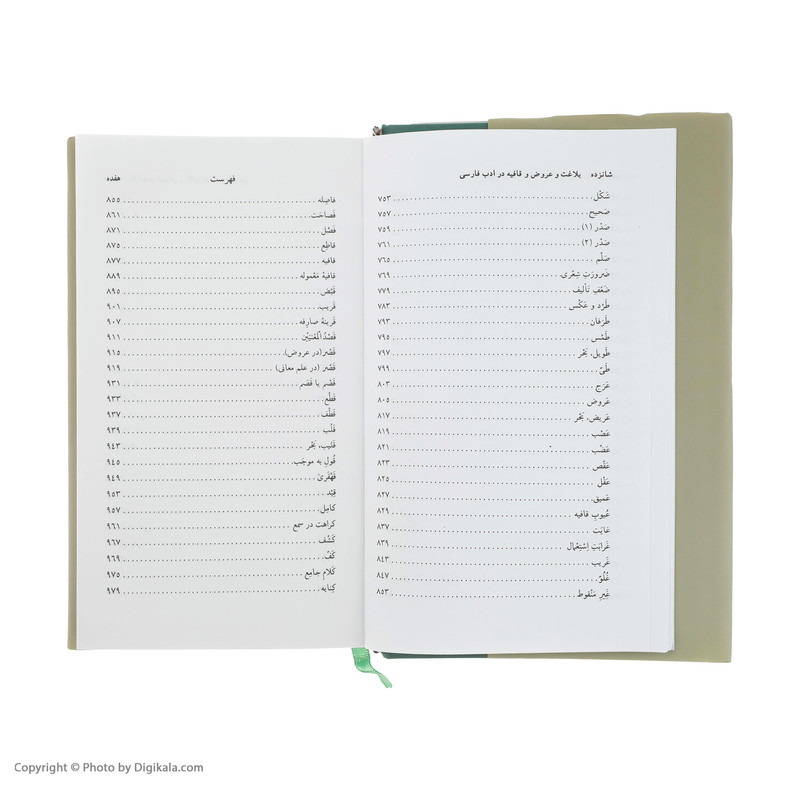 شانزده بلاغت و عروض و قافیه در ادب فارسی
شَکْل ۷۵۳
صَحیح ۷۵۷
صَدْر (۱) ۷۵۹
صَدْر (۲) ۷۶۱
صَلْم ۷۶۵
ضَرورَتِ شِعْری ۷۶۹
ضَعْفِ تَألیف ۷۷۹
طَرْد و عَکْس ۷۸۳
طَرَفان ۷۹۳
طَمْس ۷۹۵
طَویل، بَحْر ۷۹۷
طَیّ ۷۹۹
عَرَج ۸۰۳
عَروض ۸۰۵
عَریض، بَحْر ۸۱۷
عَصْب ۸۱۹
عَضْب ۸۲۱
عَقْص ۸۲۳
عَقْل ۸۲۵
عَمیق ۸۲۷
عُیوبِ قافیه ۸۲۹
غایَت ۸۳۷
غَرابَتِ اِسْتِعْمال ۸۳۹
غَریب ۸۴۳
غُلُوّ ۸۴۷
غَیْرِ مَنْقوط ۸۵۳
فهرست هفده
فاصِله ۸۵۵
فَصاحَت ۸۶۱
فَصْل ۸۷۱
قاطِع ۸۷۵
قافیه ۸۷۷
قافیهٔ مَعْموله ۸۸۹
قَبْض ۸۹۵
قَریب ۹۰۱
قَرینهٔ صارِفه ۹۰۷
قَصْدُ الْمَعْنَیَیْن ۹۱۱
قَصْر (در عروض) ۹۱۵
قَصْر (در علم معانی) ۹۱۹
قَصْم یا قَضَم ۹۳۱
قَطْع ۹۳۳
قَطْف ۹۳۷
قَلْب ۹۳۹
قَلیب، بَحْر ۹۴۳
قُولِ به موجَب ۹۴۵
قَهْقَریٰ ۹۴۹
قِیْد ۹۵۳
کامِل ۹۵۷
کراهت در سمع ۹۶۱
کَشْف ۹۶۷
کَفّ ۹۶۹
کَلامِ جامِع ۹۷۵
کِنایه ۹۷۹
Copyright © Photo by Digikala.com